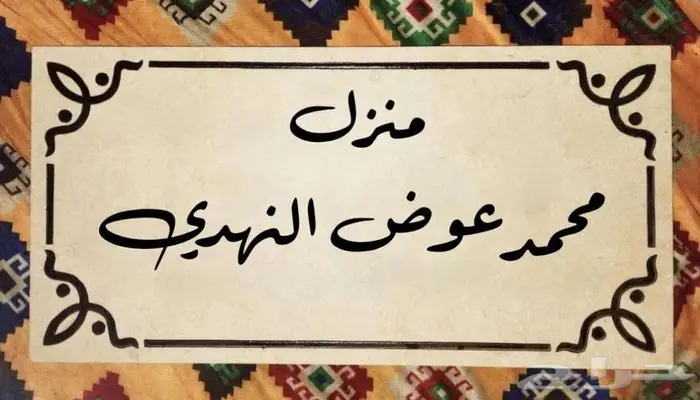 منزل
محمد عوض النهدي
حراج